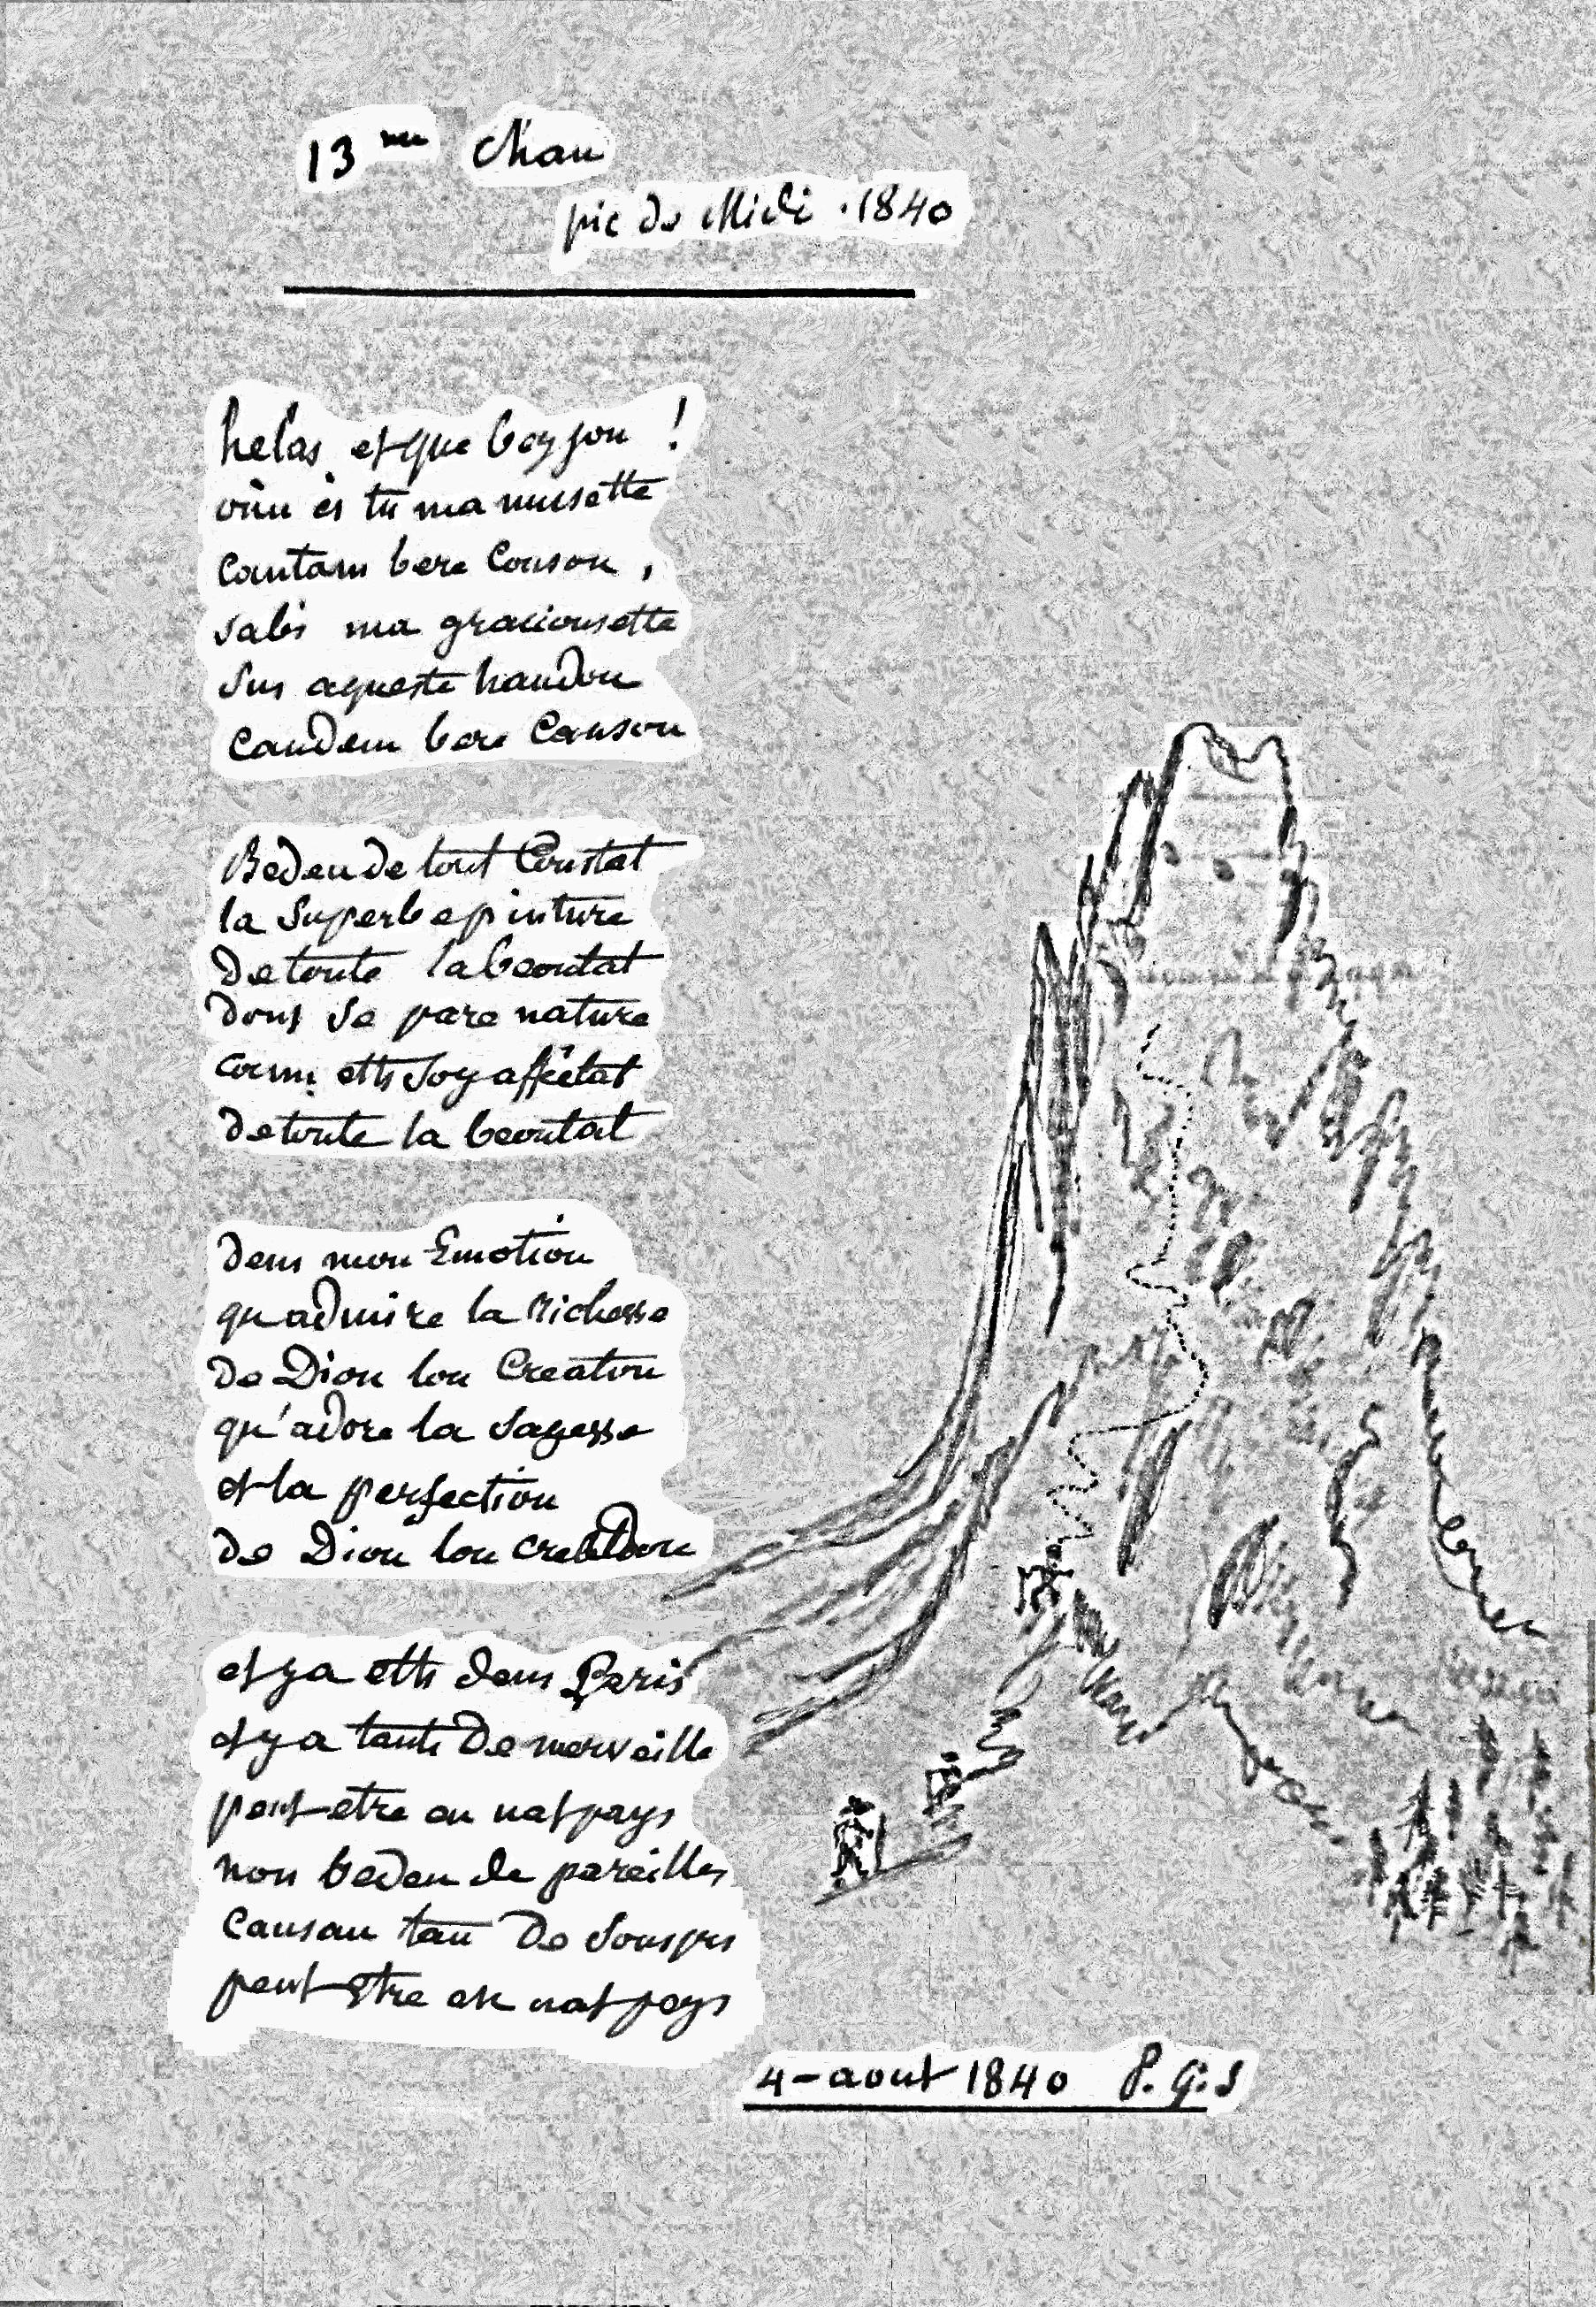 13 me Chan
pic de Midi . 1840
helas et que bey jou !
oùn ès tu ma musette
Cantam bere Conson ,
Sabi ma graciousette
Sus aqueste haudou
Candem bere Canson
Bedeu de tout Coustat
la Superbe pinture
De toute la beoutat
Dont Se pare nature
Coum eths Soy affétat
De toute la beoutat
Dens mon Emotion
qu admire la Richesse
De Diou lou Creatou
qu'adore la Sagesse
et la perfection
De Diou lou Creatou
et y a eths dens Paris
et y a tante De merveille
peut-etre en nat pays
non bedeu de pareilles
Causan tan De Souspis
peut Etre en nat pays
4-aout 1840 P. G. S